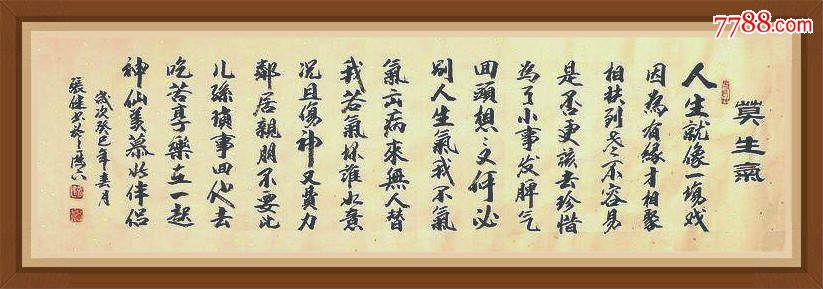 7788.com
中国收藏热线
莫生氣
人生就像一場戏
因為有緣才相聚
相扶到老不容易
是否更該去珍惜
為了小事发脾气
回頭想之又何必
別人生氣我不氣
氣出病來無人替
我若氣壞誰如意
况且傷神又費力
鄰居親朋不要比
儿孫瑣事由他去
吃苦享樂在一起
神仙羡慕好伴侶
歲次癸巳年春月
張健書於